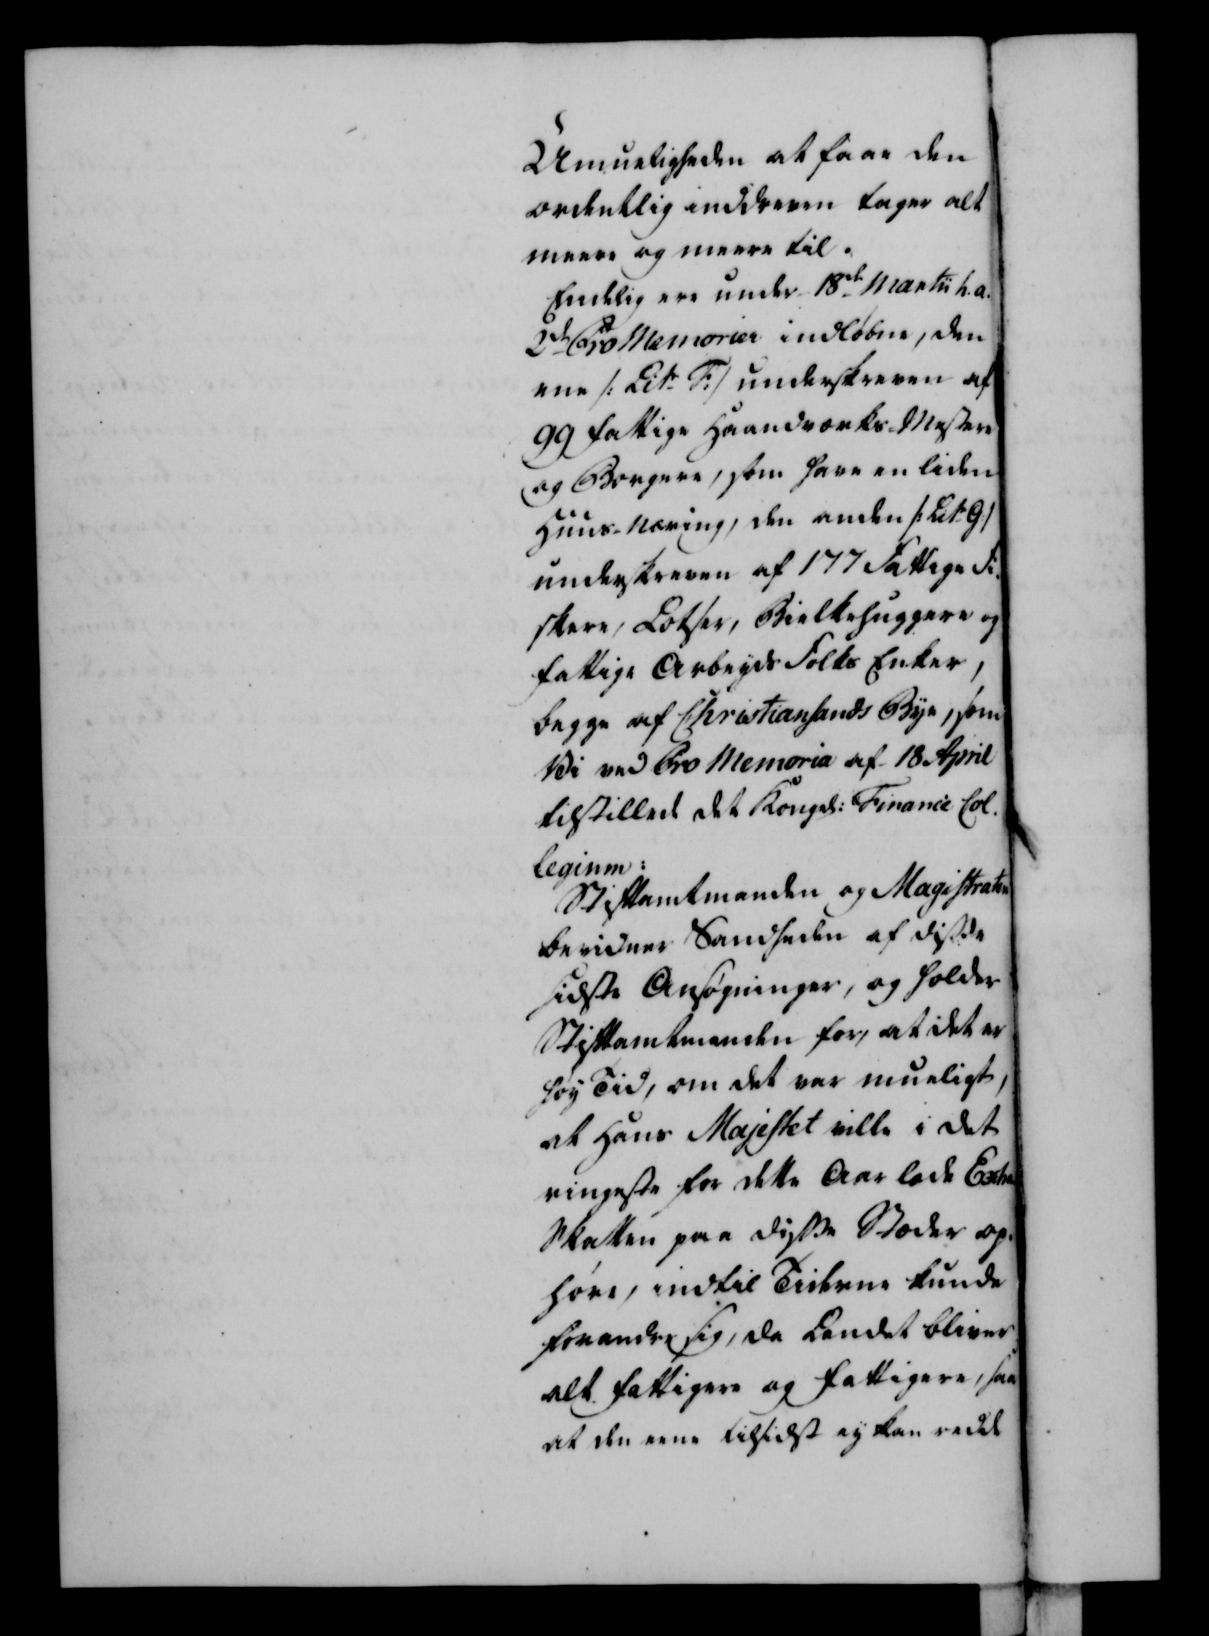 Umueligheden at faae den
ordentlig inddreven tager alt
meere og meere til.
Endelig ere under 18de Martii h. a.
2de Pro Memorier indløbne, den
ene /: Litr. F:/ underskreven af
99 fattige Haandværks-Mestere
og Borgere, som have en liden
Huus-Næring, den anden /: Litr. G:/
underskreven af 177 Fattige Fi-
skere, Lotser, Bielkehuggere og
fattige Arbeyds Folks Enker,
begge af Christiansands Bye, som
Vi ved Pro Memoria af 18 April
tilstillede det Kongel: Finance Col-
legium:
Stiftamtmanden og Magistraten
bevidner Sandheden af disse
sidste Ansøgninger, og holder
Stiftamtmanden for, at det er
høy Tid, om det var mueligt,
at Hans Majestet ville i det
ringeste for dette Aar lade Extra
Skatten paa disse Stæder op-
høre, indtil Tiderne kunde
forandre sig, da Landet bliver
alt fattigere og fattigere, saa
at den eene tilsidst ey kan redde